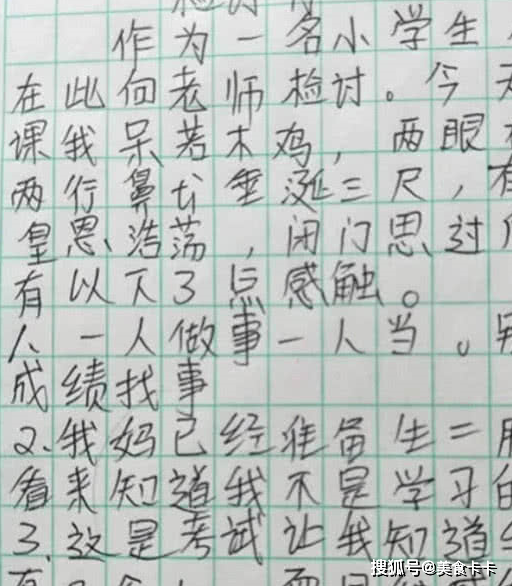 作为一名小学生
在此向老师检讨。今天
课我呆若木鸡，两眼
两行鼻ti垂涎三尺，有
皇恩、浩荡，闭门思过
有以下3点感触。
1、一人做事一人当。另
成绩找事
2.我妈已经准备生二胎
看来知道我不是学习的
3.这是考试让我知道
搜狐号@美食卡卡